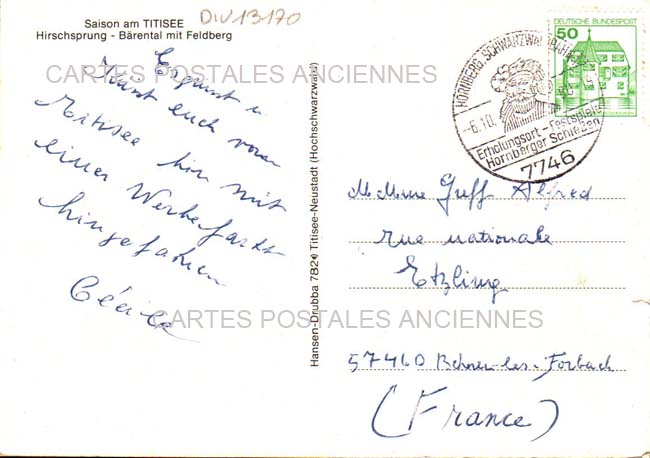 DIV13170
Saison am TITISEE
Hirschsprung - Bärental mit Feldberg
CARTES POSTALES ANCIENNES
euch vom
Titisee hin mit
einer Werbefahrt
hingefahren
Cécile
Hansen-Drubba 7820 Titisee-Neustadt (Hochschwarzwald)
DEUTSCHE BUNDESPOST
50
HORNBERG, SCHWARZWALDBAHN
-6.10.
Erholungsort - Festspiele
Hornberger Schießen
7746
Greff Alfred
rue nationale
Etzling
57460 Behren-les-Forbach
(France)
CARTES POSTALES ANCIENNES